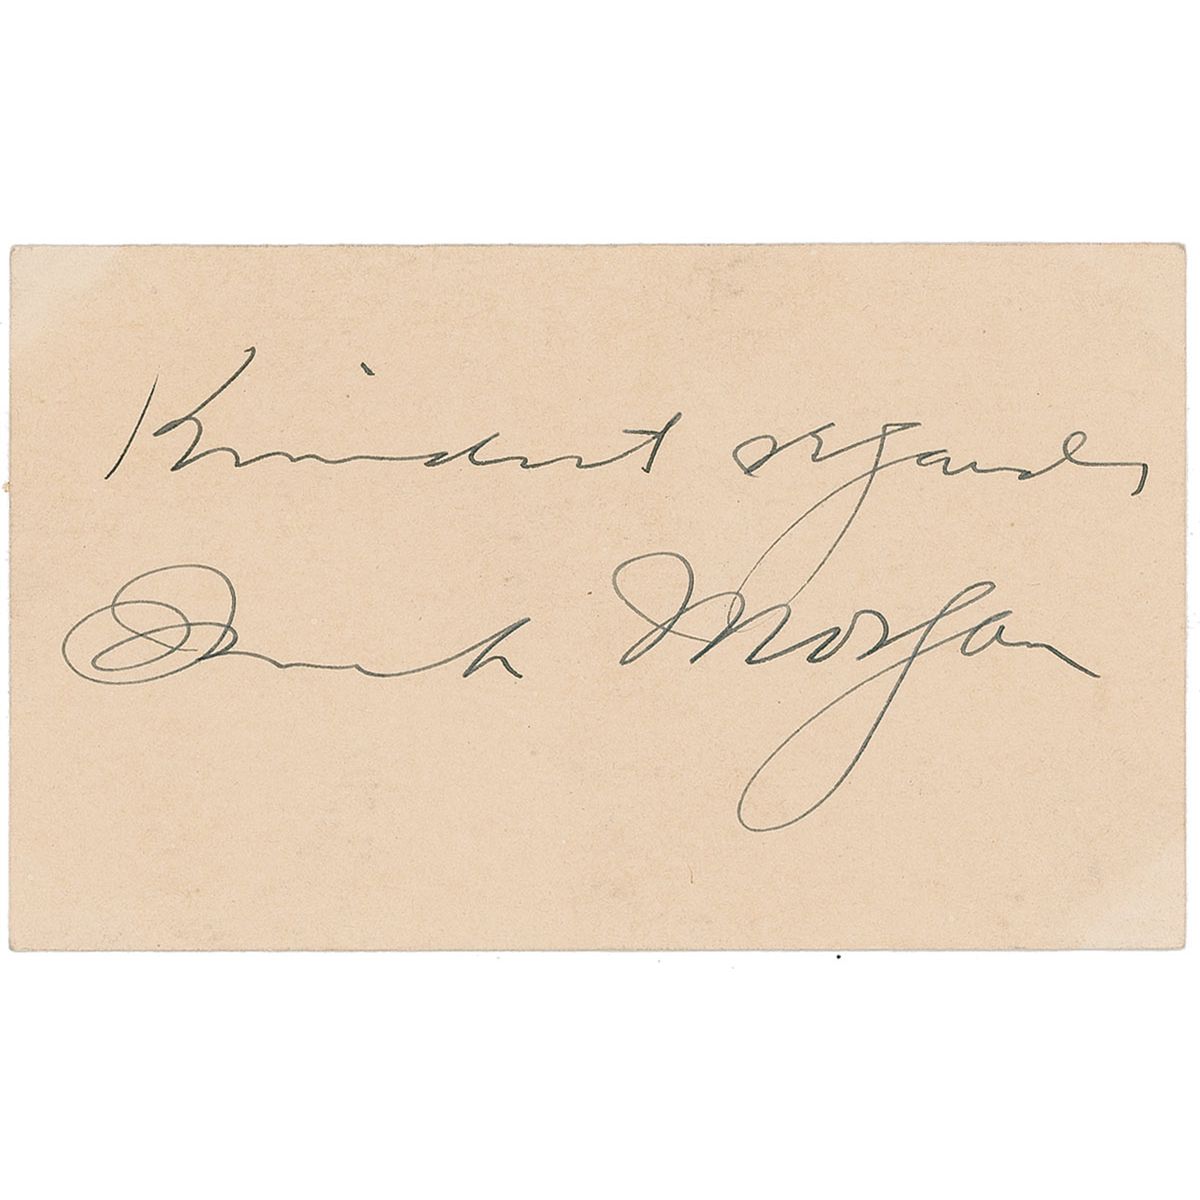 Kindest regards,
Frank Morgan